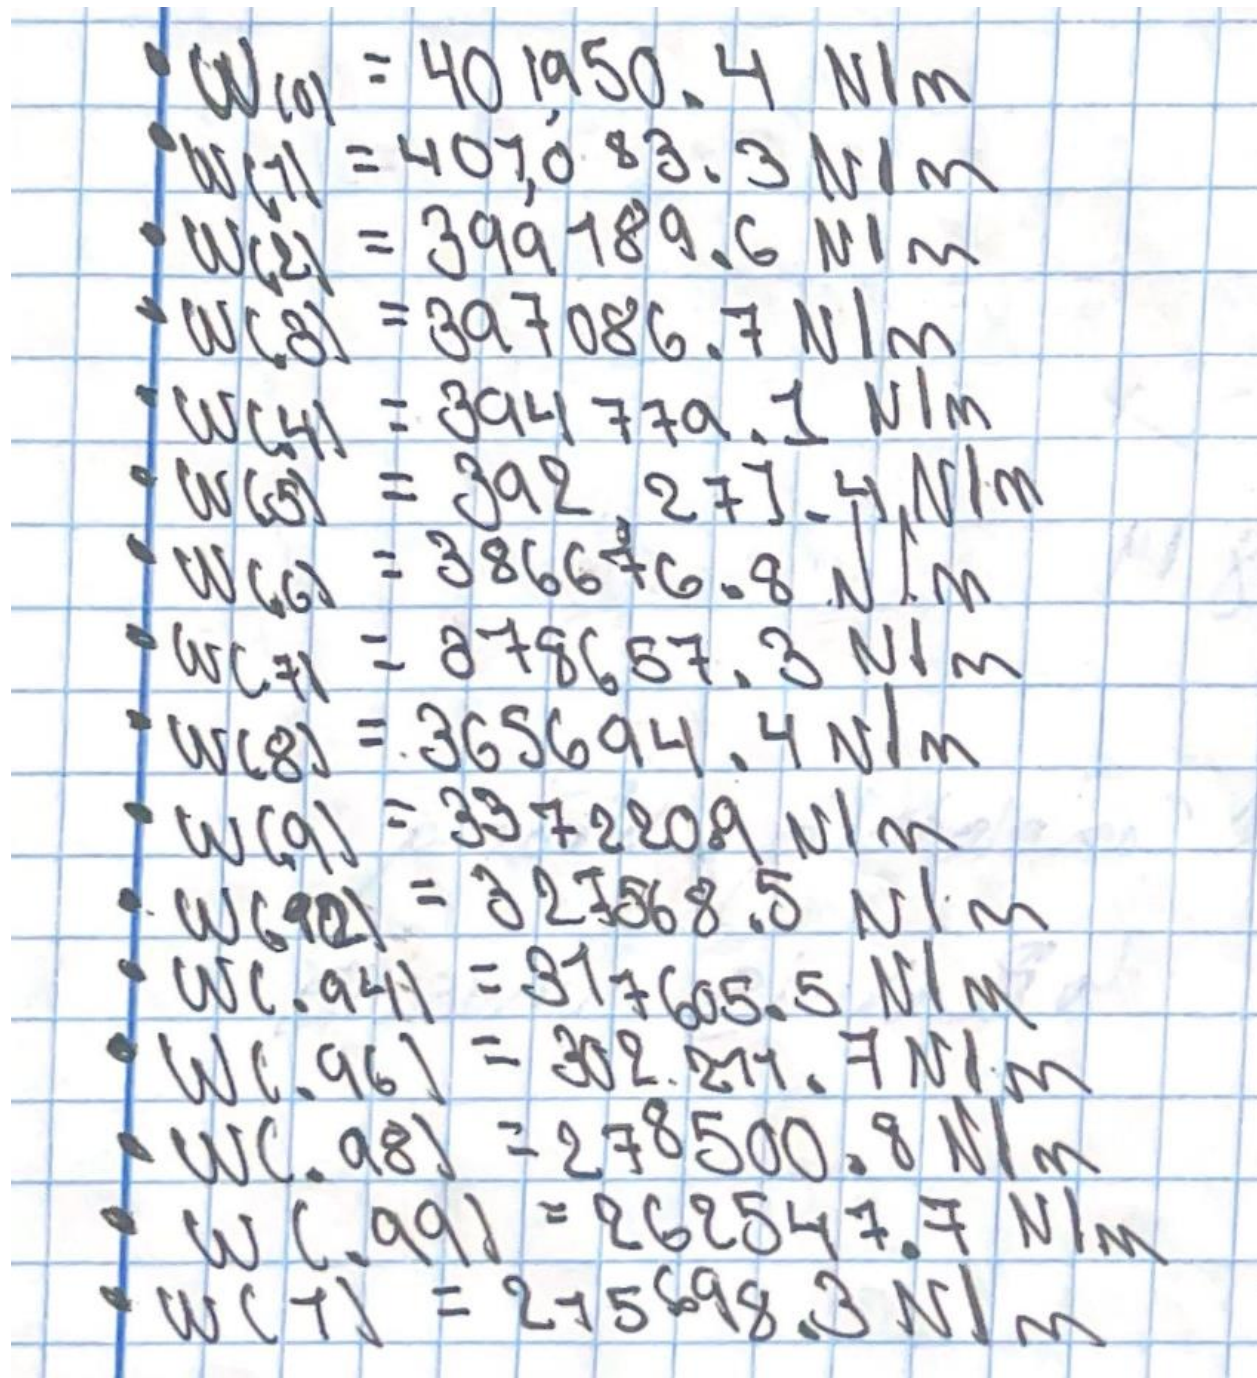 • W(0) = 401,950.4 N/m
• W(.1) = 401,083.3 N/m
• W(.2) = 399189.6 N/m
• W(.3) = 397086.7 N/m
• W(.4) = 394779.1 N/m
• W(.5) = 392,271.4 N/m
• W(.6) = 386676.8 N/m
• W(.7) = 378657.3 N/m
• W(8) = 365694.4 N/m
• W(.9) = 337220.9 N/m
• W(.92) = 327568.5 N/m
• W(.94) = 317605.5 N/m
• W(.96) = 302.211.7 N/m
• W(.98) = 278500.8 N/m
• W(.99) = 262547.7 N/m
• W(1) = 215698.3 N/m